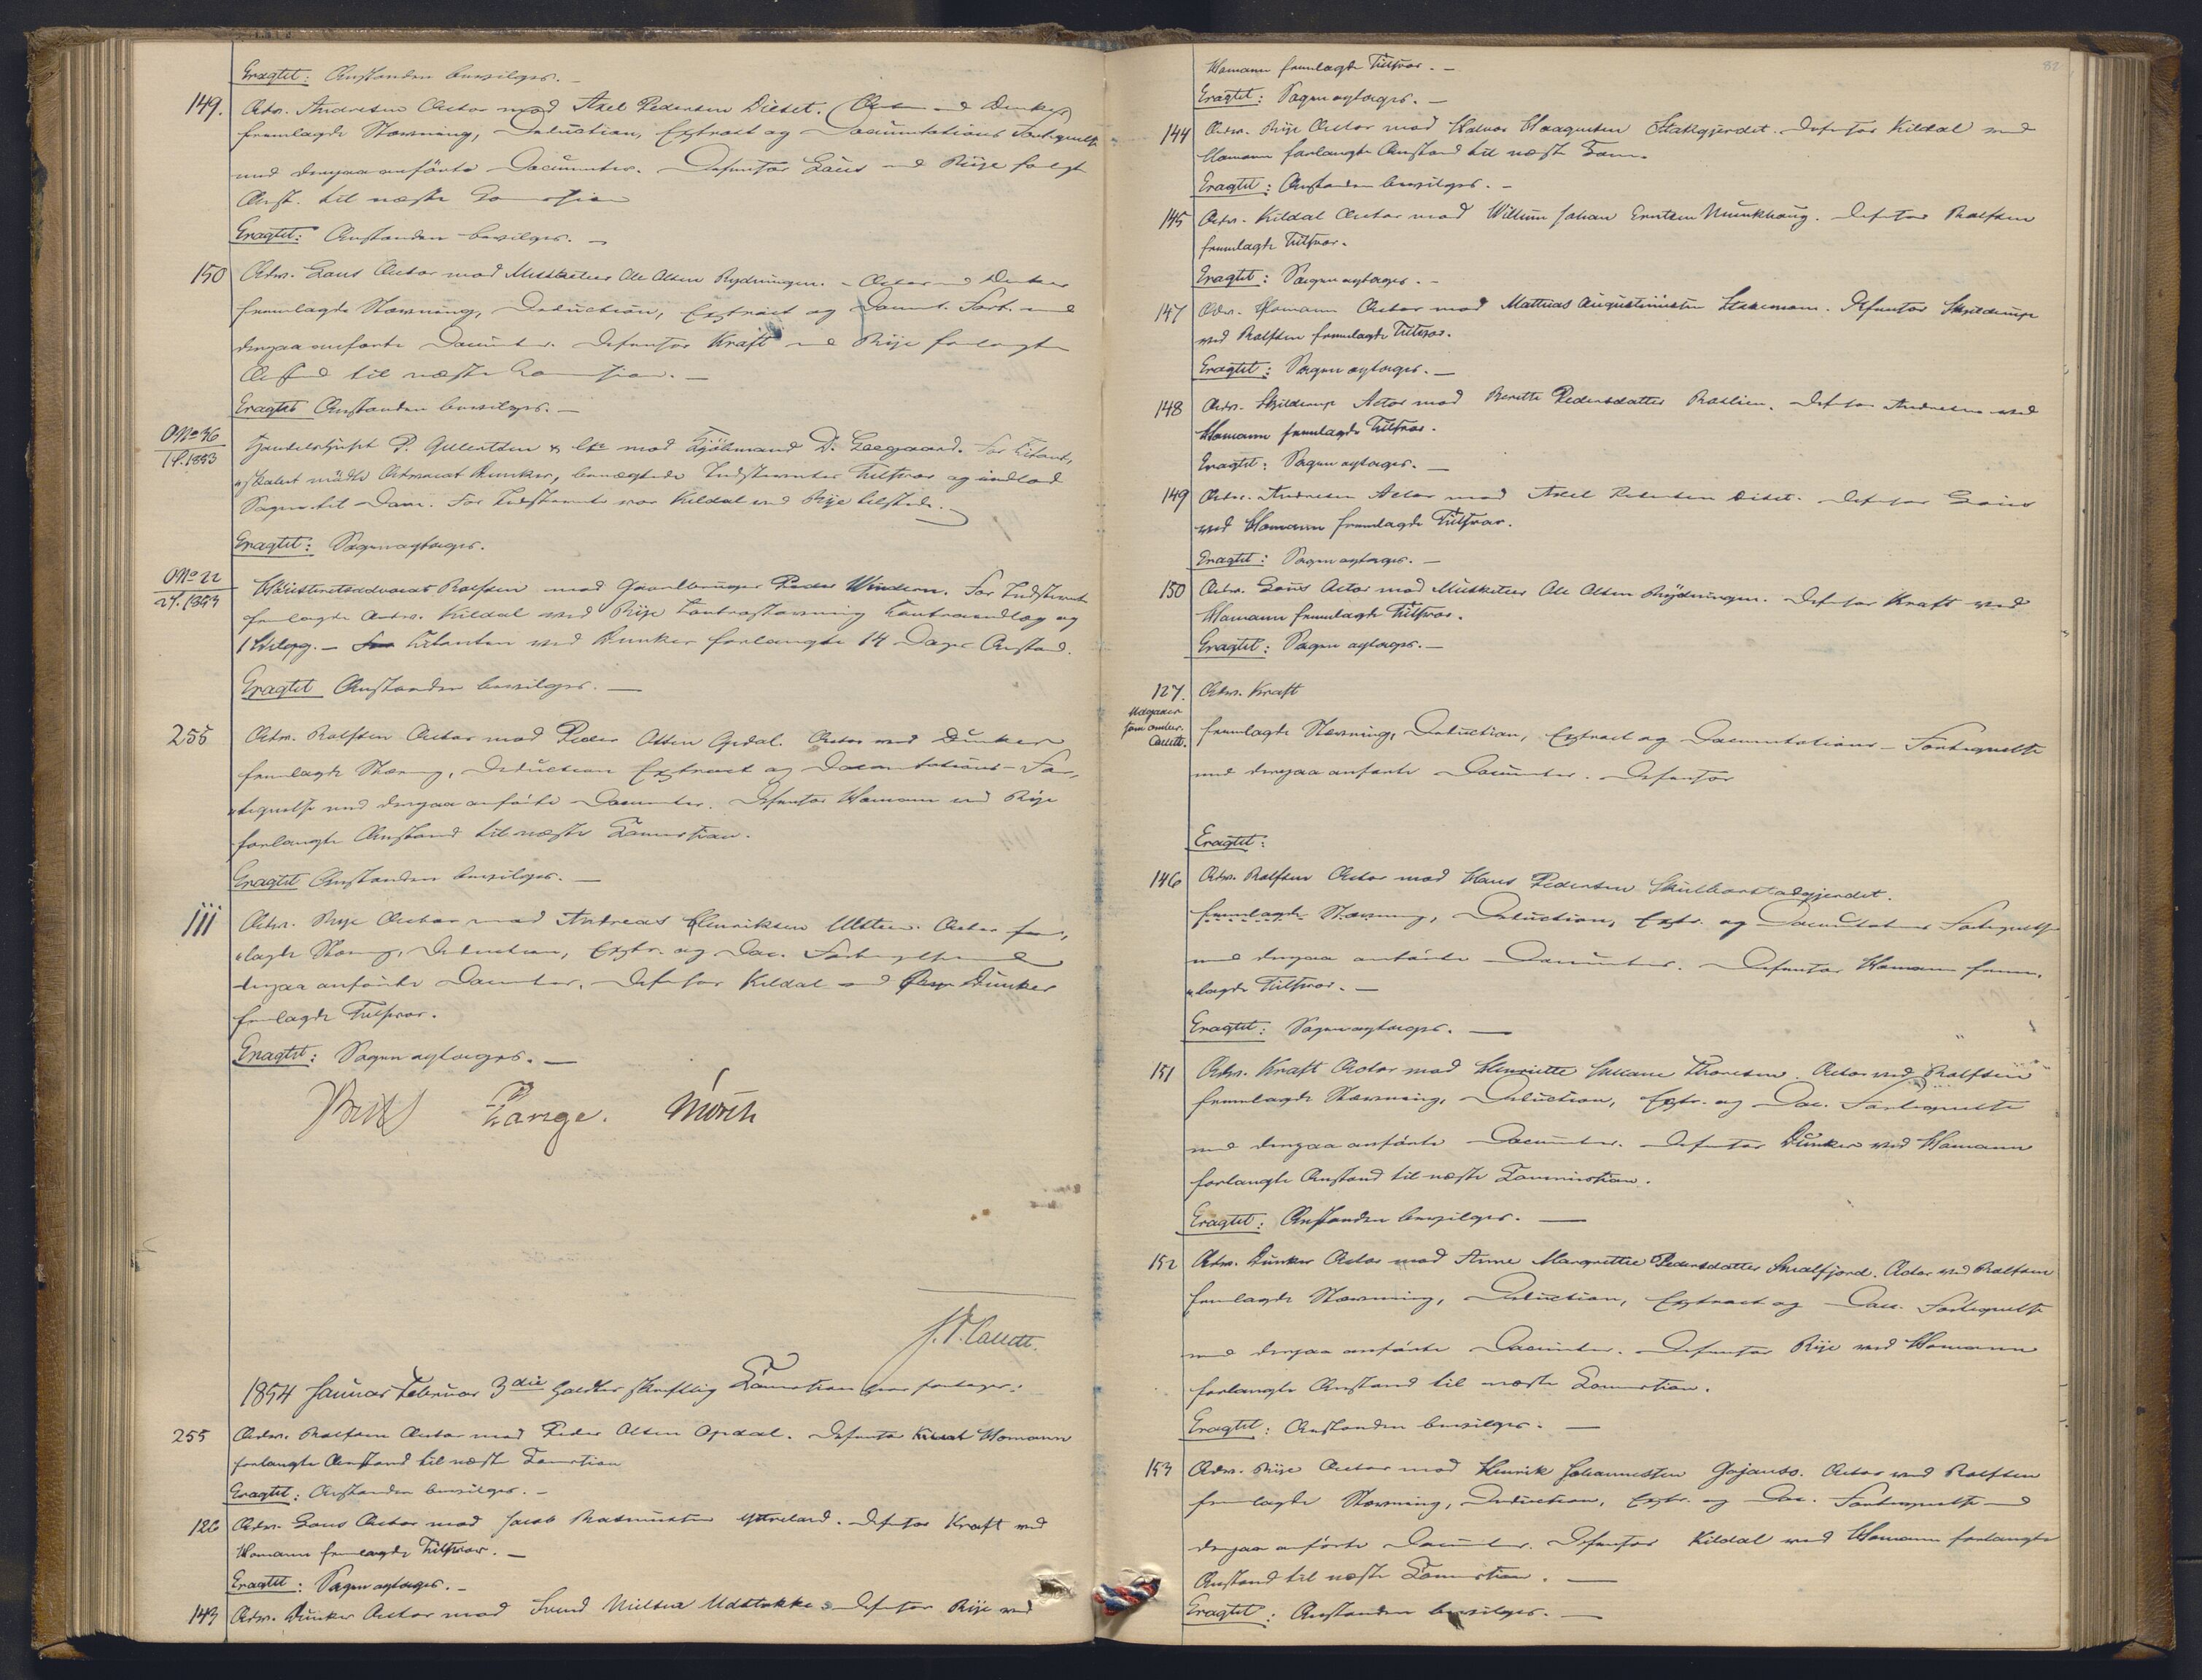 Eragtet: Anstanden bevilges. –
149. Adv. Andresen Actor mod Axel Pedersen Dieset. Actor ved Dunker
fremlagde Stævning, Deduction, Extract og Documentations Fortegnelse
med derpaa anförte Documenter. Defensor Gaus ved Rije forlgt
Anst. til næste Session
Eragtet: Anstanden bevilges. –
150 Adv. Gaus Actor mod Musketeer Ole Olsen Rydningen. – Actor ved Dunker
fremlagde Stævning, Deduction, Extract og Docum. Fort. med
derpaa anførte Documenter. Defensor Kraft ved Rije forlangte
Anstand til næste Session. –
Eragtet Anstanden bevilges. –
O No 36
1ʃ. 1853
Handelshuset P. Gullertsen & Cie mod Kjöbmand D. Geegaard. For Citant-
skabet mödte Advocat Dunker, benægtede Indstevntes Tilsvar og indlod
Sagen til Dom. For Indstevnte var Kildal ved Rije tilstede.
Eragtet: Sagen optages.
O No 22
2ʃ. 1853
Höiesteretsadvocat Rolfsen mod Gaardbruger Peder Windern. For Indstevnte
fremlagde Adv. Kildal ved Rije Contrastævning Contraindlæg og
1 Bilag. – Citanten ved Dunker forlangte 14 Dages Anstand.
Eragtet Anstanden bevilges. –
255 Adv. Rolfsen Actor mod Peder Olsen Opdal. Actor ved Dunker
fremlagde Stævng, Deduction Extract og Documentations-For-
tegnelse med derpaa anförte Documenter. Defensor Homann ved Rije
forlangte Anstand til næste Session.
Eragtet Anstanden bevilges. –
111 Adv. Rije Actor mod Andreas Henriksen Ulsteen. Actor frem-
lagde Stævng, Deduction, Extr. og Doc. Fortegnelse med
derpaa anförte Documenter. Defensor Kildal ved Dunker
fremlagde Tilsvar.
Eragtet: Sagen optages. –
Lange. Mörch
1854 Januar Februar 3die holdtes skriftlig Session hvor foretoges:
255 Adv. Rolfsen Actor mod Peder Olsen Opdal. Defensor Homann
forlangte Anstand til næste Session
Eragtet: Anstanden bevilges. –
126 Adv. Gaus Actor mod Jacob Rasmussen Yttreland. Defensor Kraft ved
Homann fremlagde Tilsvar. –
Eragtet: Sagen optages. –
143 Adv. Dunker Actor mod Svend Nielsen Udstokke. Defensor Rije ved
82
Homann fremlagde Tilsvar. –
Eragtet: Sagen optages. –
144 Adv. Rije Actor mod Halvor Haagensen Stakgjerdet. Defensor Kildal ved
Homann forlangte Anstand til næste Session
Eragtet: Anstanden bevilges. –
145 Adv. Kildal Actor mod Willum Johan Erntsen Munkhaug. Defensor Rolfsen
fremlagde Tilsvar.
Eragtet: Sagen optages. –
147 Adv. Homann Actor mod Mathias Augustinusen Stenemoen. Defensor Skjelderup
ved Rolfsen fremlagde Tilsvar.
Eragtet: Sagen optages. –
148 Adv. Skjelderup Actor mod Berette Pedersdatter Roelien. Defensor Andresen ved
Homann fremlagde Tilsvar.
Eragtet: Sagen optages. –
149 Adv. Andresen Actor mod Axel Pedersen Diset. Defensor Gaus
ved Homann fremlagde Tilsvar.
Eragtet: Sagen optages. –
150 Adv. Gaus Actor mod Musketeer Ole Olsen Röjdningen. Defensor Kraft ved
Homann fremlagde Tilsvar.
Eragtet: Sagen optages. –
127. Adv. Kraft
Udgaaer
som
fremlagde Stævning, Deduction, Extract og Documentations-Fortegnelse
med derpaa anførte Documenter. Defensor
Eragtet:
146 Adv. Rolfsen Actor mod Hans Pedersen Skulbørstadgjerdet.
fremlagde Stævning, Deduction, Extr. og Documentations Fortegnelse
med derpaa anförte Documenter. Defensor Homann frem-
lagde Tilsvar. –
Eragtet: Sagen optages. –
151 Adv. Kraft Actor mod Henriette Susanne Thoresen. Actor ved Rolfsen
fremlagde Stævning, Deduction, Extr. og Doc. Fortegnelse
med derpaa anförte Documenter. Defensor Dunker ved Homann
forlangte Anstand til næste Session.
Eragtet: Anstanden bevilges. –
152 Adv. Dunker Actor mod Anne Margrethe Pedersdatter Smalfjord. Actor ved Rolfsen
fremlagde Stævning, Deduction, Extract og Doc. Fortegnelse
med derpaa anførte Documenter. Defensor Rije ved Homann
forlangte Anstand til næste Session.
Eragtet: Anstanden bevilges. –
153 Adv. Rije Actor mod Henrik Johannessen Gajanes. Actor ved Rolfsen
fremlagde Stævning, Deduction, Extr. og Doc. Fortegnelse med
derpaa anförte Documenter. Defensor Kildal ved Homann forlangte
Anstand til næste Session. –
Eragtet: Anstanden bevilges. –